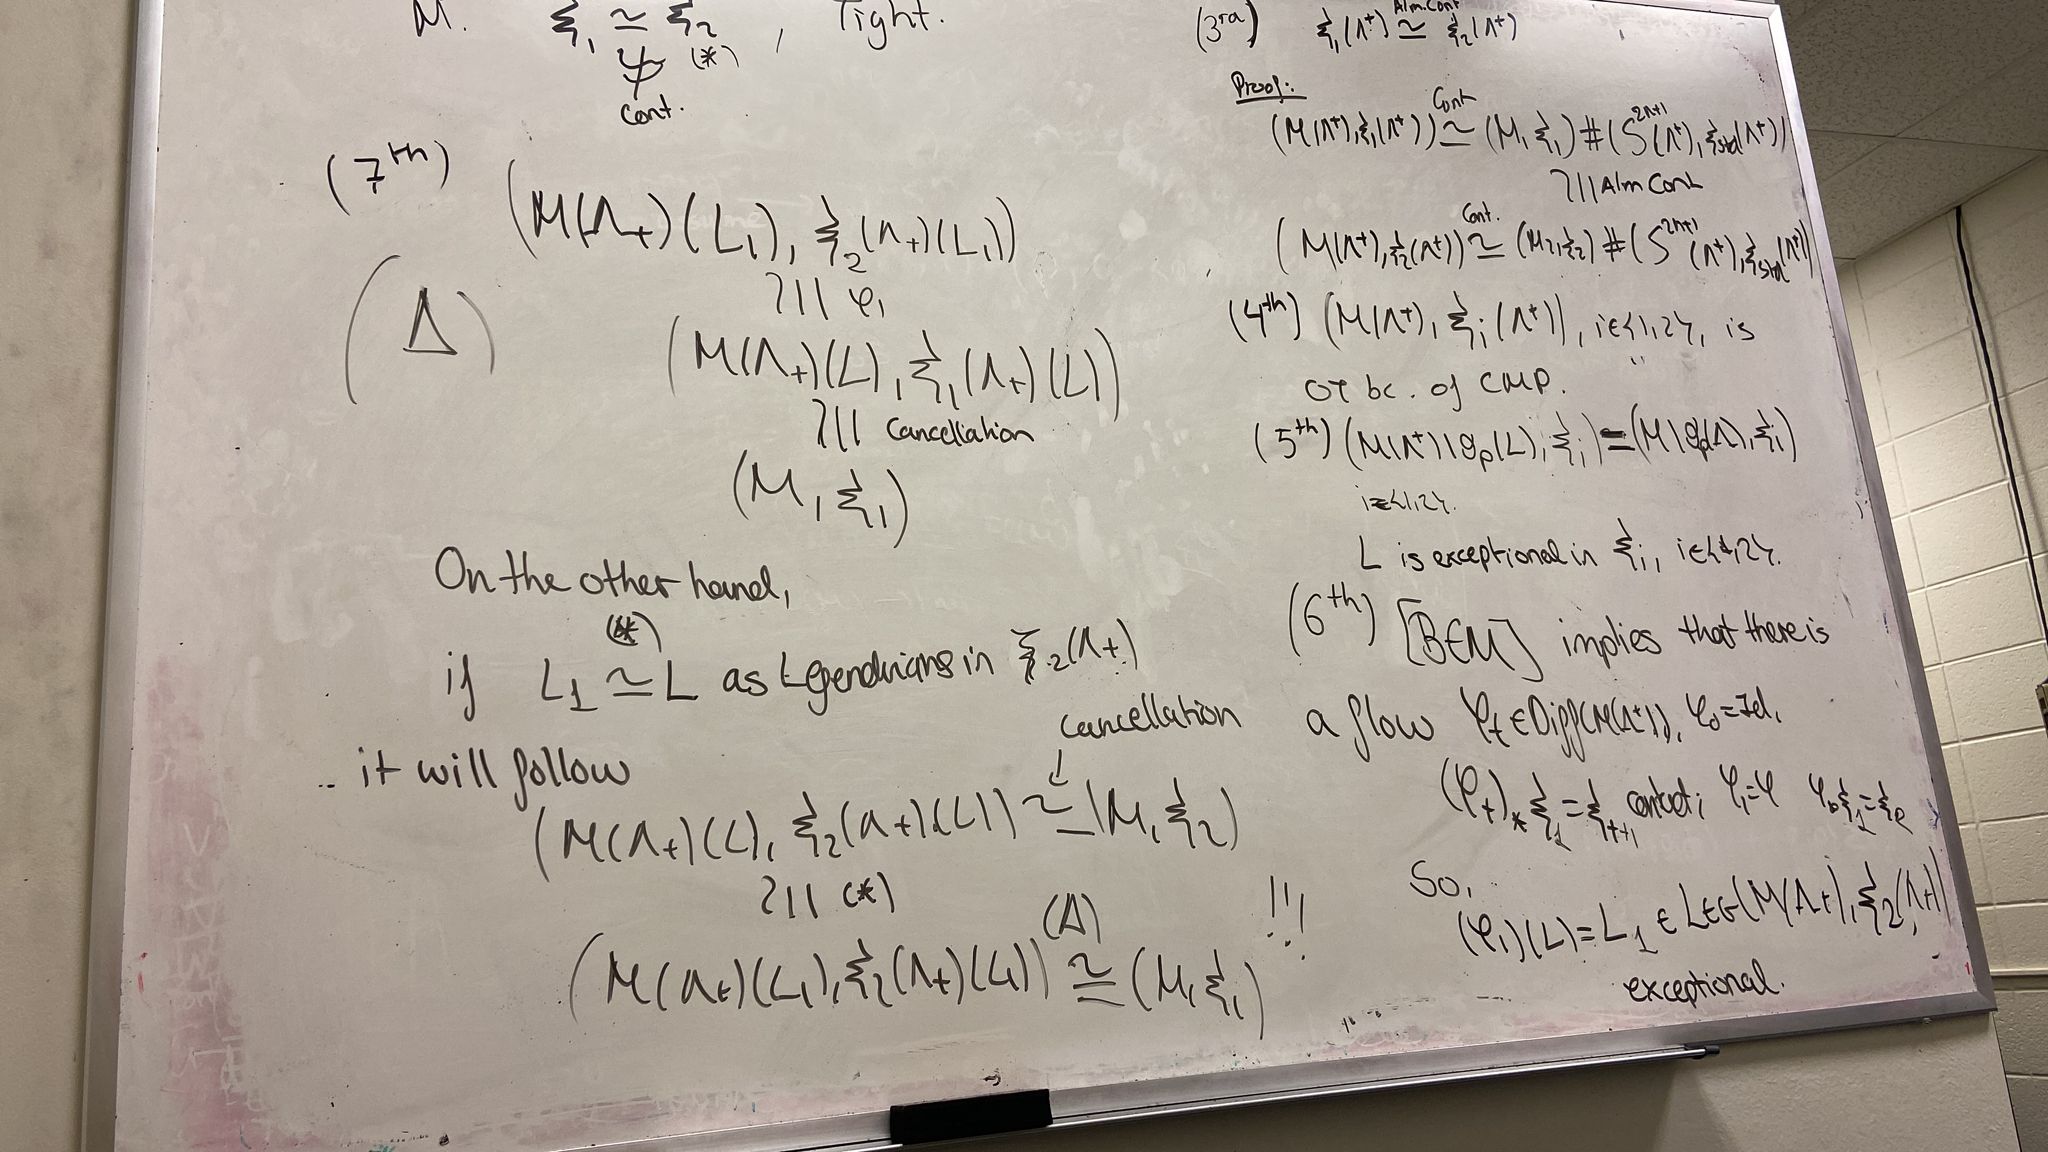 M. ξ₁ ≃ ξ₂ , Tight.
ψ (*)
cont.
(7th) (M(Λ+)(L₁), ξ₂(Λ+)(L₁))
≀|| φ₁
(Δ) (M(Λ+)(L), ξ₁(Λ+)(L))
≀|| cancellation
(M, ξ₁)
On the other hand,
(*)
if L₁ ≃ L as Legendrians in ξ₂(Λ+)
cancellation
it will follow
(M(Λ+)(L), ξ₂(Λ+)(L)) ≃ (M, ξ₂)
≀|| (*)
(Δ) !!!
(M(Λ+)(L₁), ξ₂(Λ+)(L₁)) ≅ (M, ξ₁)
Alm. Cont
(3rd) ξ₁(Λ+) ≃ ξ₂(Λ+)
Proof:
Cont
(M(Λ+), ξ₁(Λ+)) ≃ (M, ξ₁) # (S²ⁿ⁺¹(Λ+), ξstd(Λ+))
≀|| Alm Cont
Cont.
(M(Λ+), ξ₂(Λ+)) ≃ (M₂, ξ₂) # (S²ⁿ⁺¹(Λ+), ξstd(Λ+))
(4th) (M(Λ+), ξi(Λ+)), i∈{1,2}, is
OT bc. of CMP.
(5th) (M(Λ+)\Op(L), ξi) = (M\Op(Λ), ξi)
i∈{1,2}.
L is exceptional in ξi, i∈{1,2}.
(6th) [BEM] implies that there is
a flow φt ∈ Diff(M(Λ+)), φ₀=Id,
(φt)*ξ₁ = ξt+1 contact; φ₁=φ φ*ξ₁=ξ₂
So,
(φ₁)(L) = L₁ ∈ LEG(M(Λ+), ξ₂(Λ+))
exceptional.